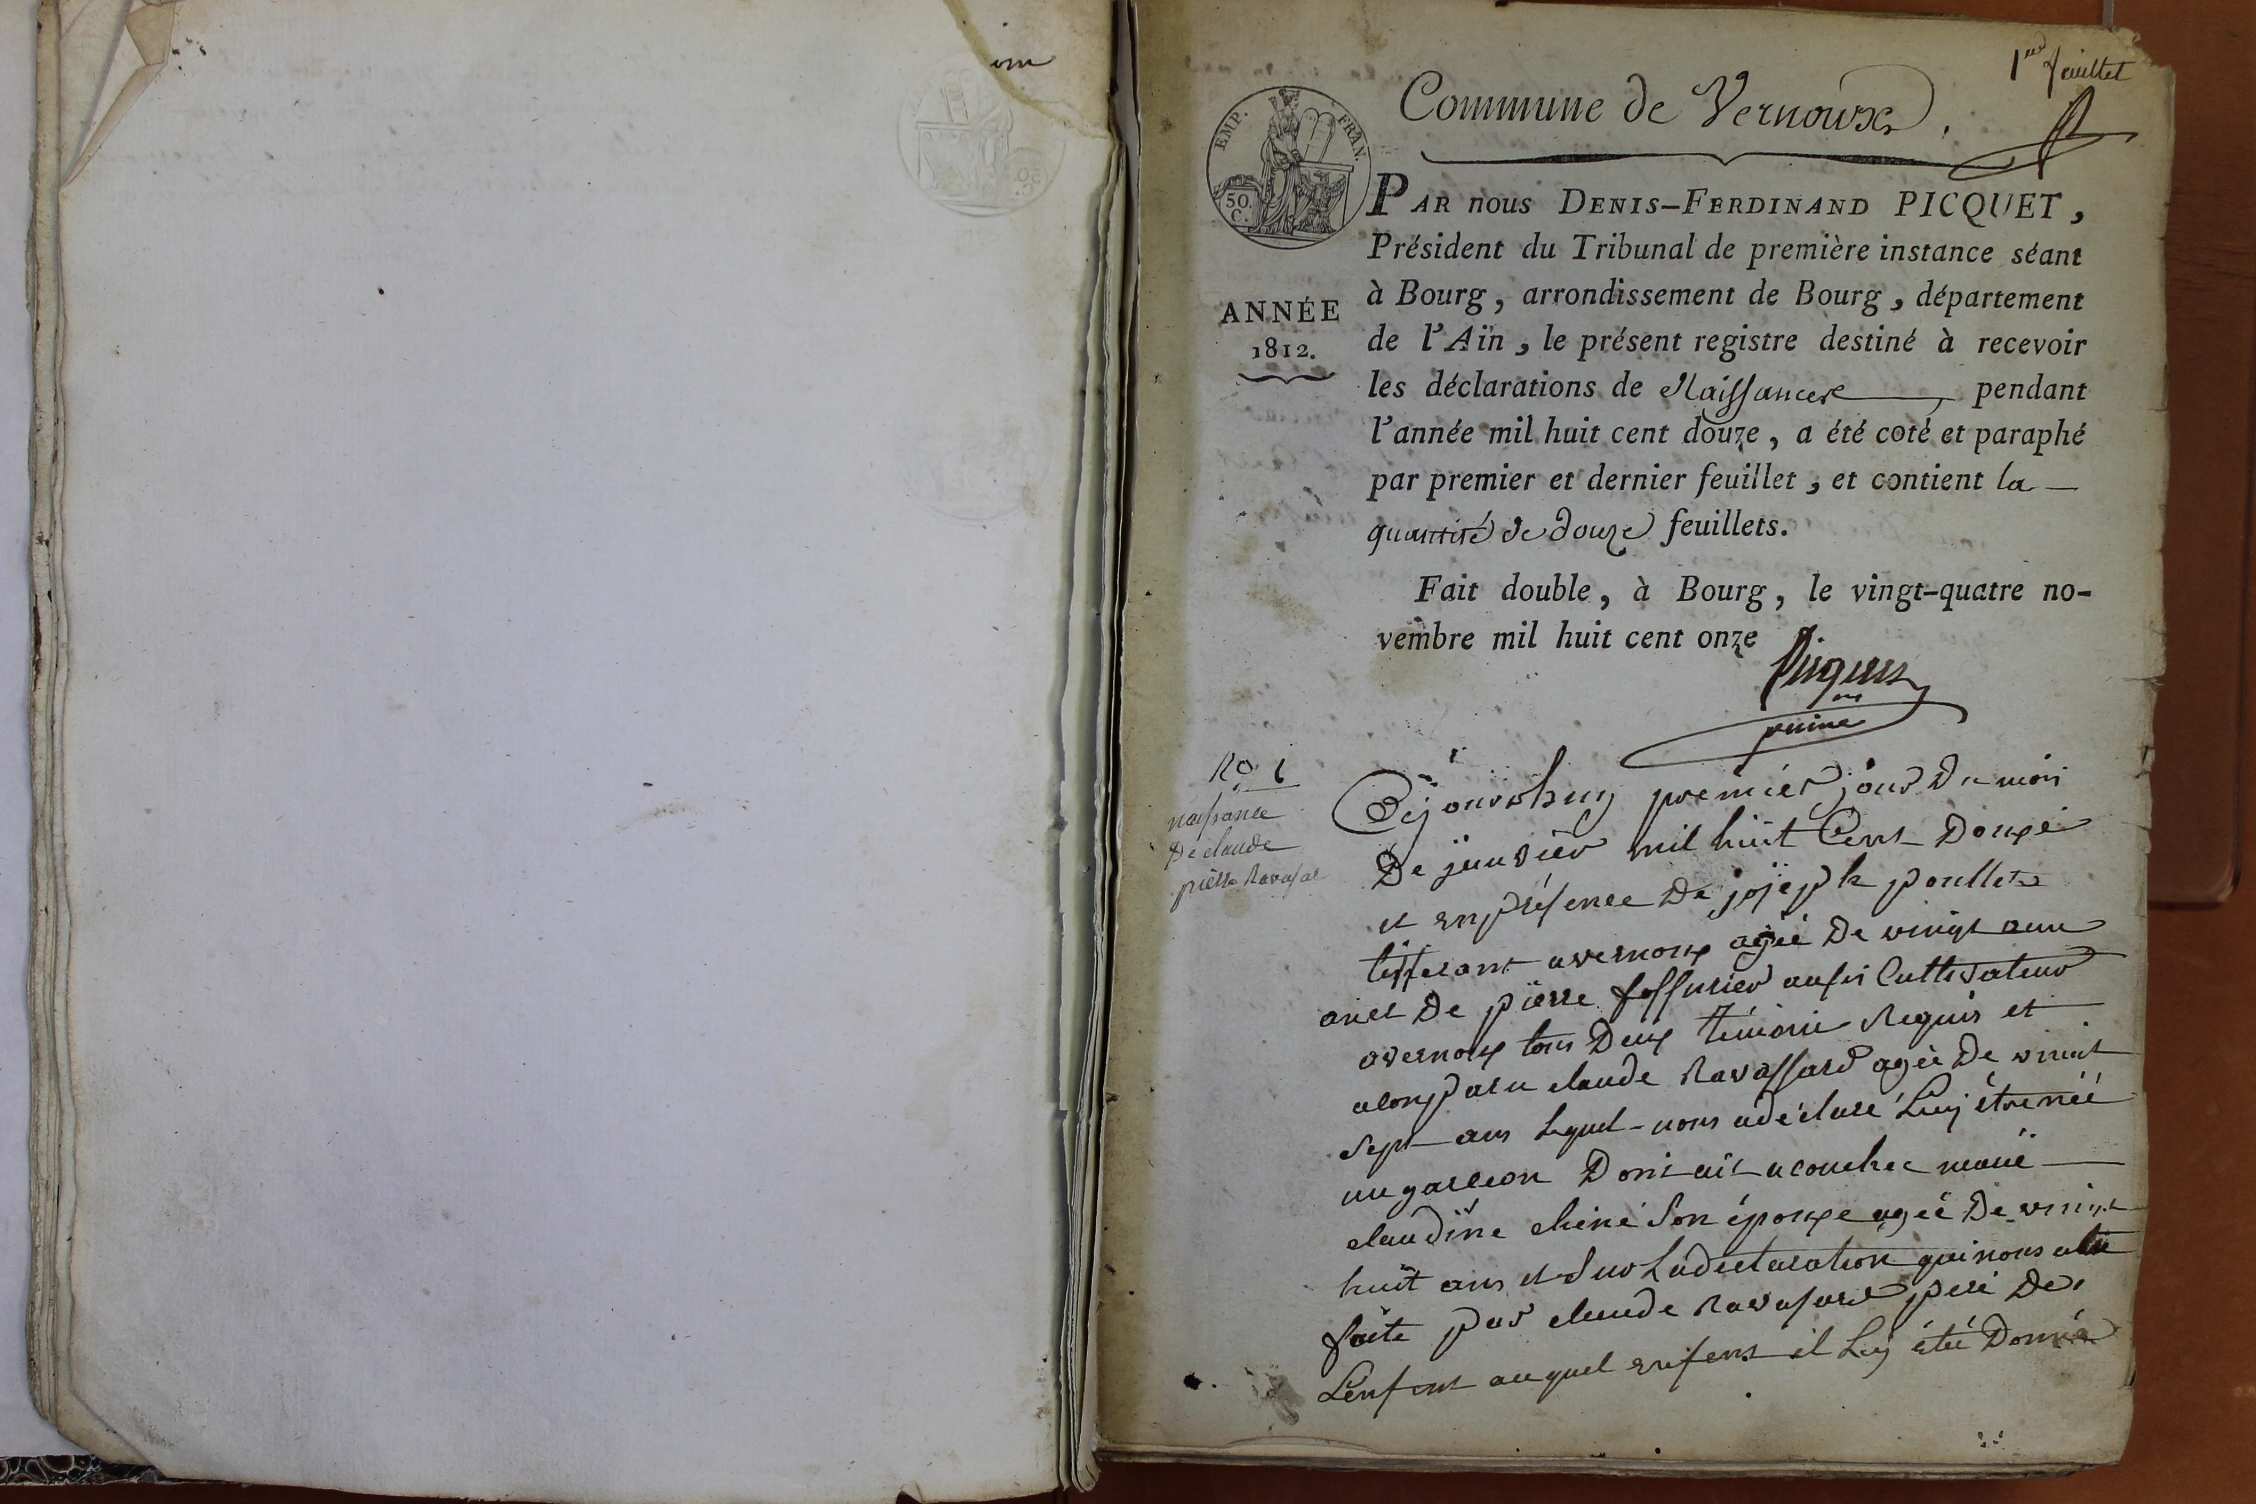 1er feuillet
Commune de Vernoux,
EMP. FRAN.
50.
C.
PAR nous DENIS-FERDINAND PICQUET,
Président du Tribunal de première instance séant
à Bourg, arrondissement de Bourg, département
ANNÉE
1812.
de l'Ain, le présent registre destiné à recevoir
les déclarations de Naissances, pendant
l'année mil huit cent douze, a été coté et paraphé
par premier et dernier feuillet, et contient la
quantité de douze feuillets.
Fait double, à Bourg, le vingt-quatre no-
vembre mil huit cent onze
Picquet
No. 1
naissance
De claude
pierre Ravasar
Cejourdhuy premier jour Du mois
De janvier mil huit Cent Douze
et en présence De joseph poullet
tisserant a vernoux agéé De vingt
anet De pierre fossurier aussi Cultivateur
a vernoux tous Deux témoin Requis et
a conparu claude Ravassard agéé De vinit
sept ans lequel nous a déclaré Luy être néé
un garcon Dont ait acouchee
claudine chêne son épouxe agéé De vinit
huit ans et sur La declaration qui nous a été
faite par claude Ravasard pere De
L'enfent auquel enfent il Luy été Donné